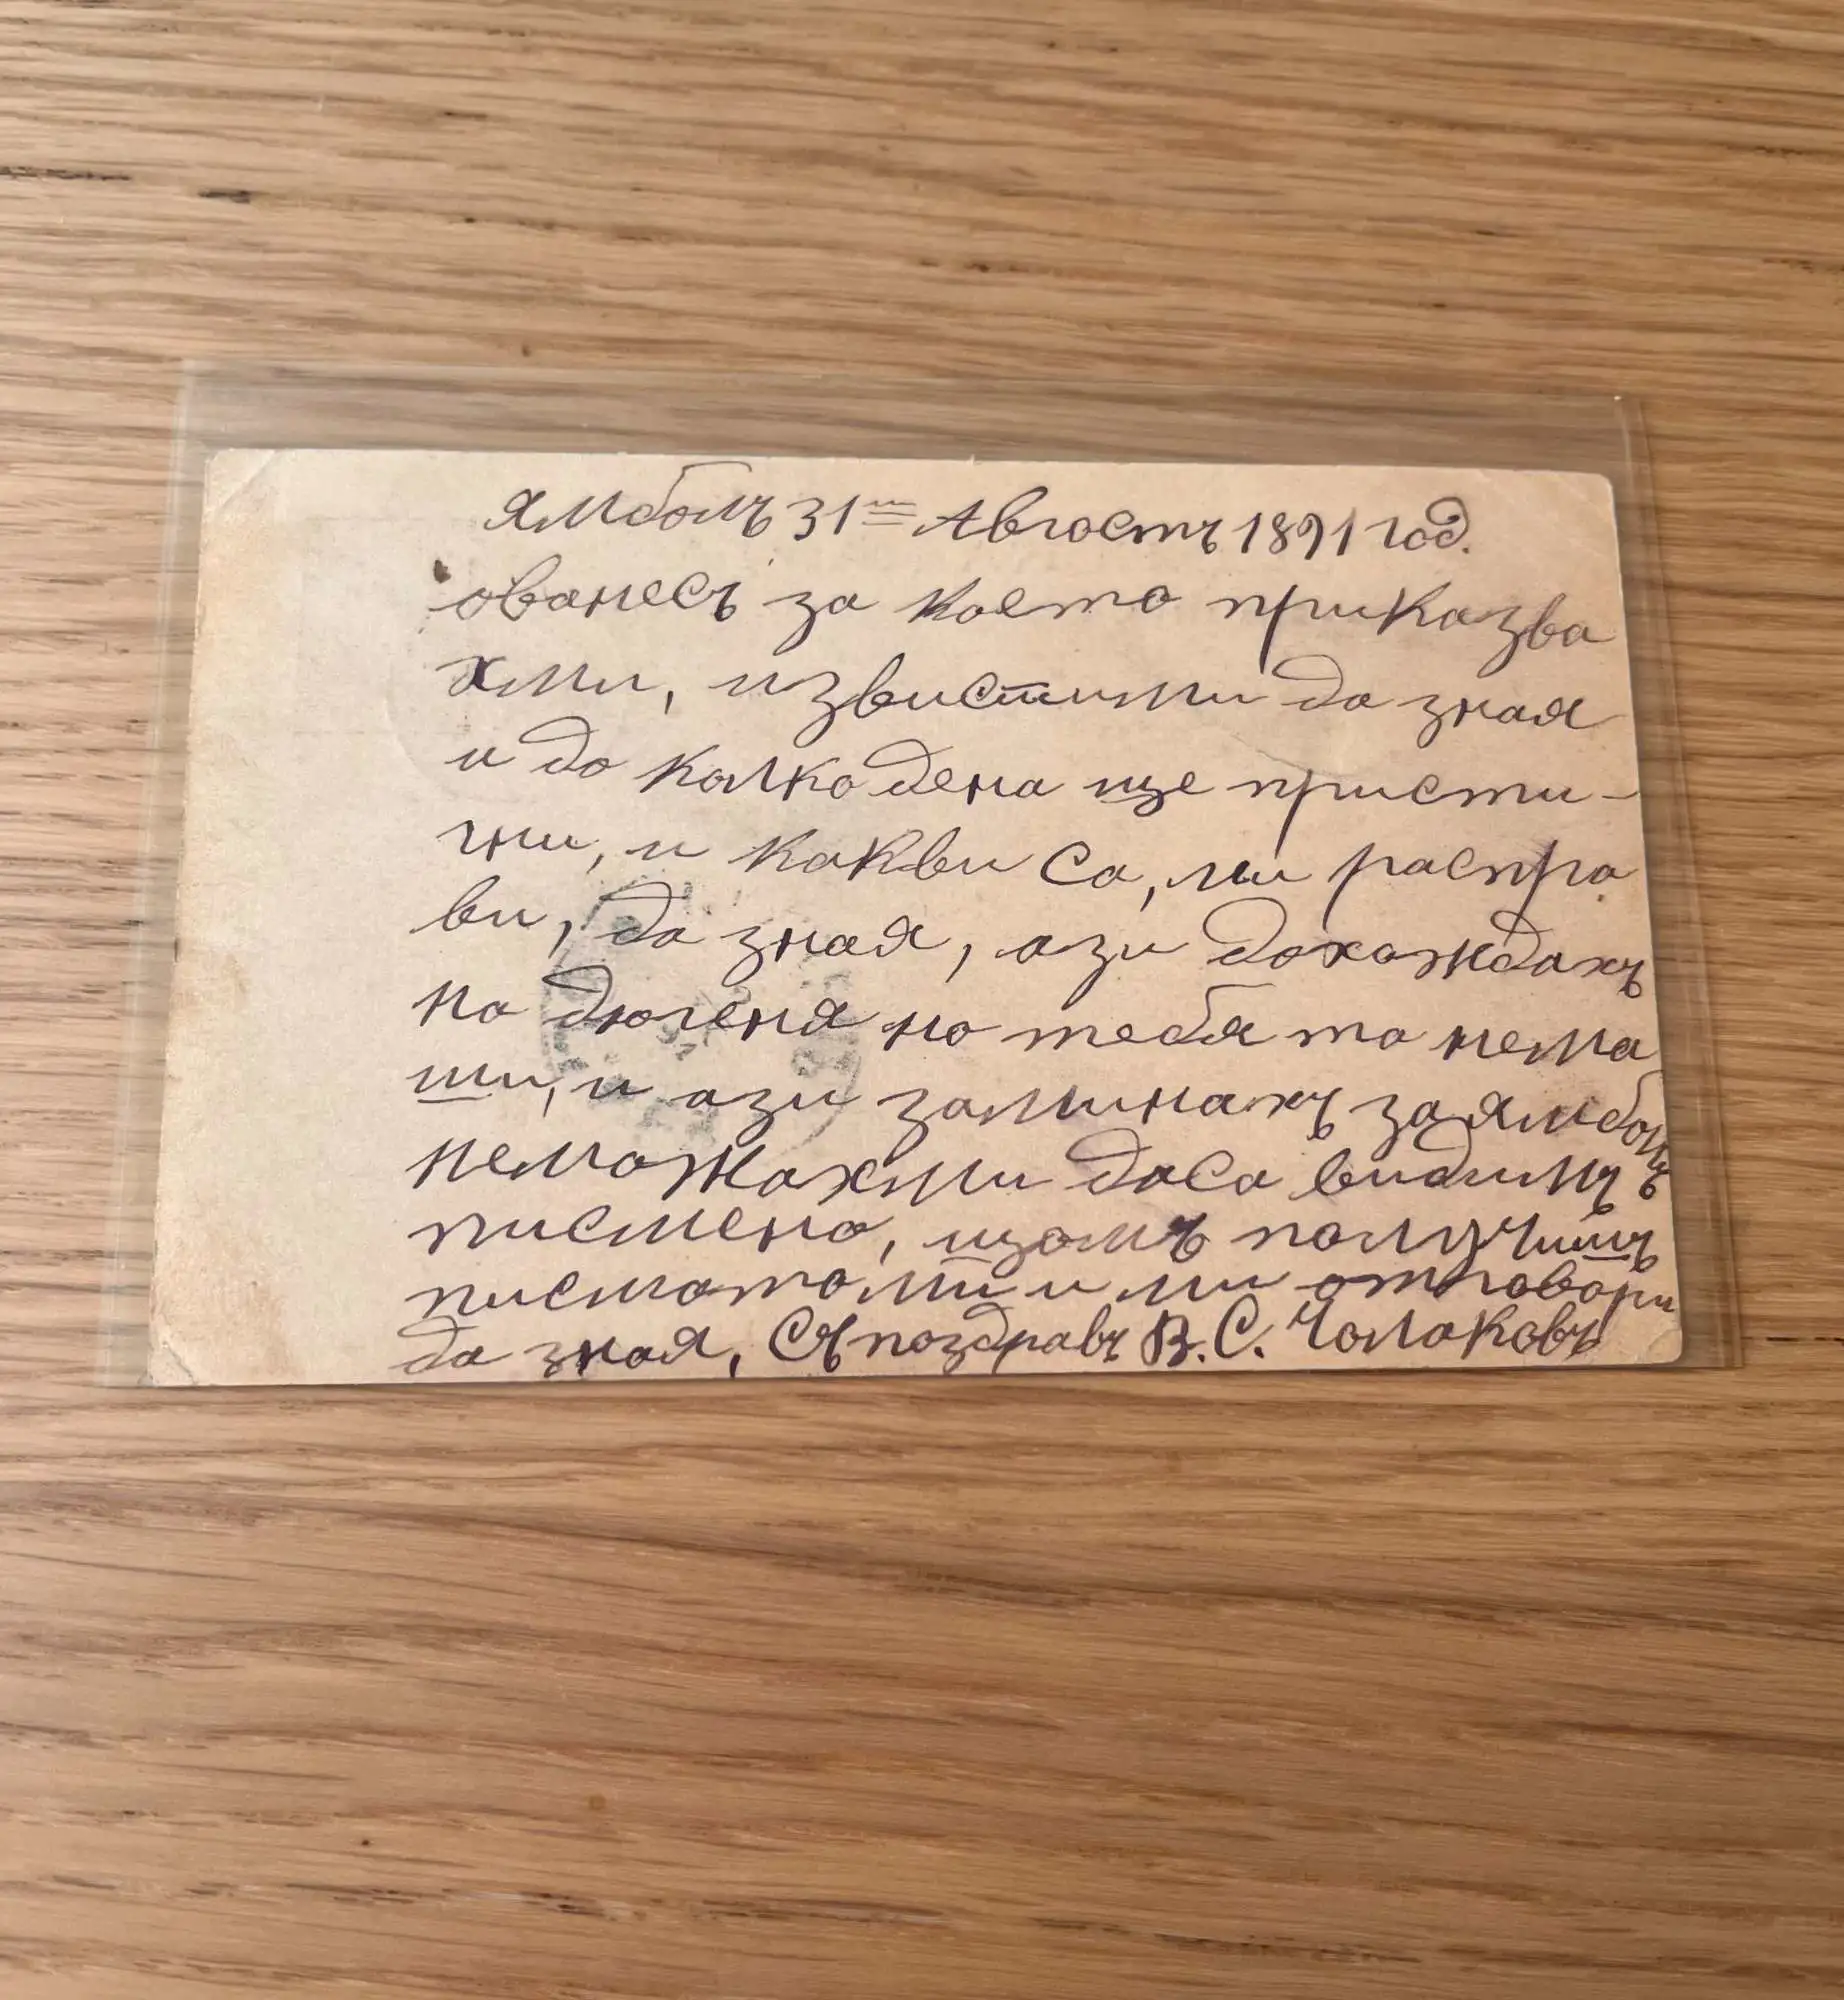 Ямболъ 31ий Августъ 1891 год.
Ованесъ за които приказва
хми, извистими да зная
и до колко дена ще присти-
гни, и какви са, ми распра
ви, да зная, ази дохождахъ
на дюгеня но тебя та нема
ши, и ази заминахъ за Ямболъ
неможахми даса видимъ
писмено, щомъ получишъ
писмотоми и ми отговори
да зная, Съ поздравъ В. С. Чолаковъ